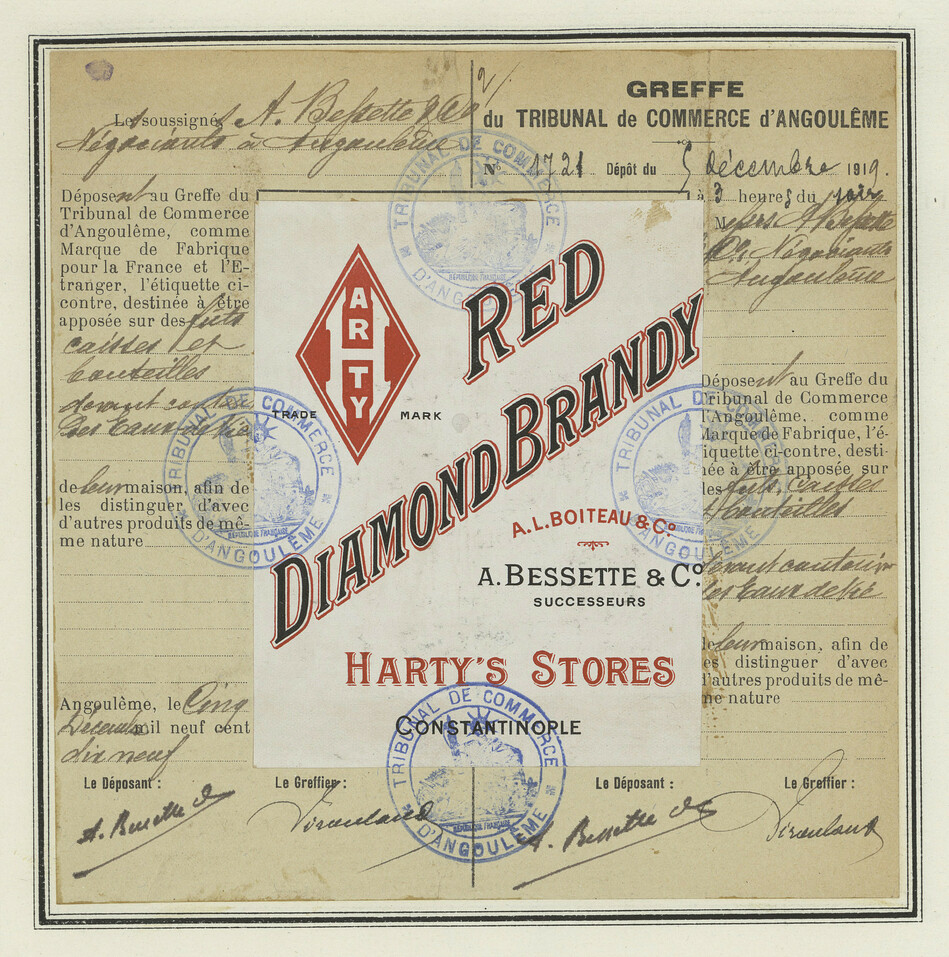 Les soussignés A. Bessette & Co
Négociants à Angoulême
GREFFE
du TRIBUNAL de COMMERCE d'ANGOULÊME
N° 1721 Dépôt du 5 décembre 1919.
à 3 heures du soir
Déposent au Greffe du
Tribunal de Commerce
d'Angoulême, comme
Marque de Fabrique
pour la France et l'E-
tranger, l'étiquette ci-
contre, destinée à être
apposée sur des fûts
caisses et
bouteilles
devant contenir
des Eaux de Vie
de leur maison, afin de
les distinguer d'avec
d'autres produits de mê-
me nature
Angoulême, le Cinq
Décembre mil neuf cent
dix neuf
Le Déposant :
A. Bessette & Co
Le Greffier :
HARTY
TRADE MARK
RED
DIAMOND BRANDY
A. L. BOITEAU & Co
A. BESSETTE & Co
SUCCESSEURS
HARTY'S STORES
CONSTANTINOPLE
A Bessette
Co Négociants
Angoulême
Déposent au Greffe du
Tribunal de Commerce
d'Angoulême, comme
Marque de Fabrique, l'é-
tiquette ci-contre, desti-
née à être apposée sur
des fûts, caisses
bouteilles
devant contenir
des Eaux de Vie
de leur maison, afin de
les distinguer d'avec
d'autres produits de mê-
me nature
Le Déposant :
A. Bessette & Co
Le Greffier :
TRIBUNAL DE COMMERCE
D'ANGOULÊME
RÉPUBLIQUE FRANÇAISE
TRIBUNAL DE COMMERCE
D'ANGOULÊME
RÉPUBLIQUE FRANÇAISE
TRIBUNAL DE COMMERCE
D'ANGOULÊME
RÉPUBLIQUE FRANÇAISE
TRIBUNAL DE COMMERCE
D'ANGOULÊME
RÉPUBLIQUE FRANÇAISE